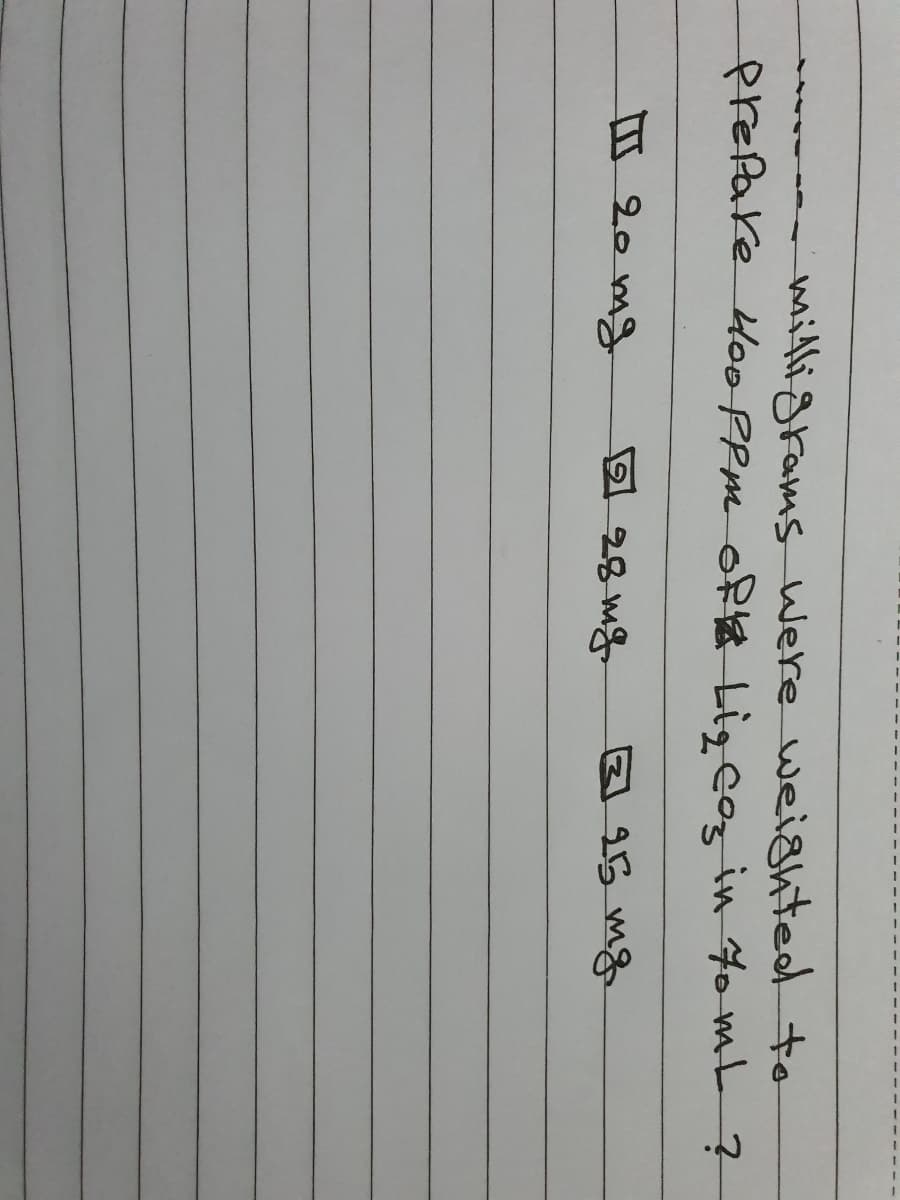 ------- milligrams were weighted to
prepare 400 PPm of Li2CO3 in 70 mL ?
1 20 mg 2 28 mg 3 25 mg